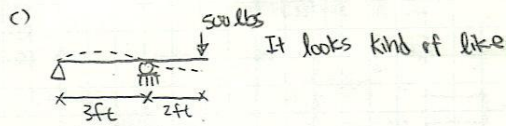 c)
500 lbs
It looks kind of like
3ft
2ft